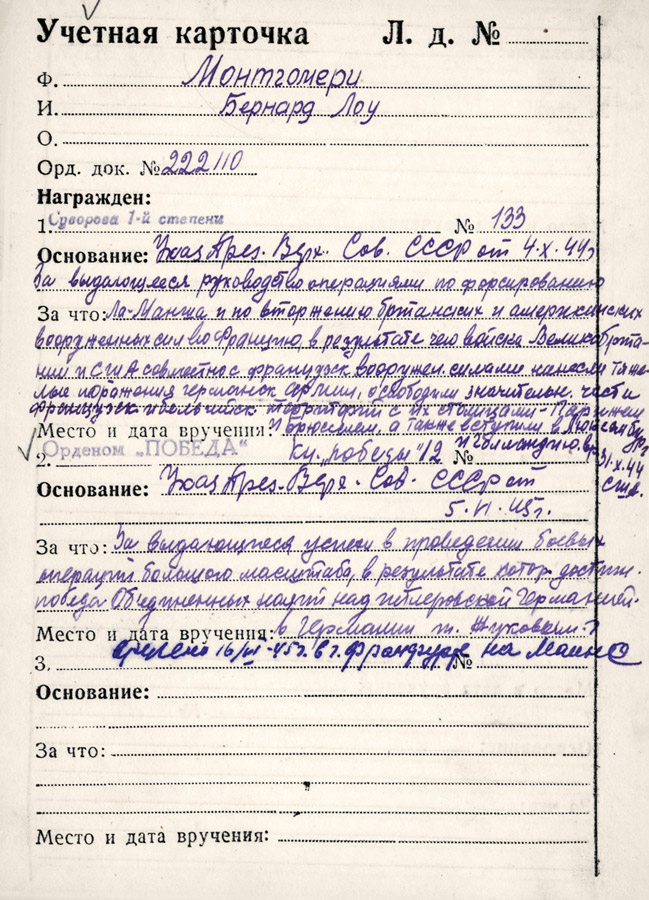 Учётная карточка Л. д. №
Ф. Монтгомери
И. Бернард Лоу
О.
Орд. док. № 222110
Награжден:
1. Суворова 1-й степени № 133
Основание: Указ През. Верх. Сов. СССР от 4.X.44г
За выдающееся руководство операциями по форсированию
За что: Ла-Манша и по вторжению британских и американских
вооруженных сил во Францию, в результате чего войска Великобрита-
нии и США совместно с французск вооружен. силами нанесли тяже-
лые поражения германск армии, освободили значительн. части
французск и бельгийск территорий с их столицами - Парижем
Место и дата вручения: и Брюсселем, а также вступили в Люксембург
и Голландию.
31.X.44
США.
2. Орденом „ПОБЕДА“ Кн. „победы" 12 №
Основание: Указ През. Верх. Сов. СССР от
5.VI.45г.
За что: За выдающиеся успехи в проведении боевых
операций большого масштаба, в результате котор. достигн.
победа Объединенных наций над гитлеровской Германией.
Место и дата вручения: в Германии т. Жуковым
3. 45г. в г. Франкфурте на Майне №
Основание:
За что:
Место и дата вручения: